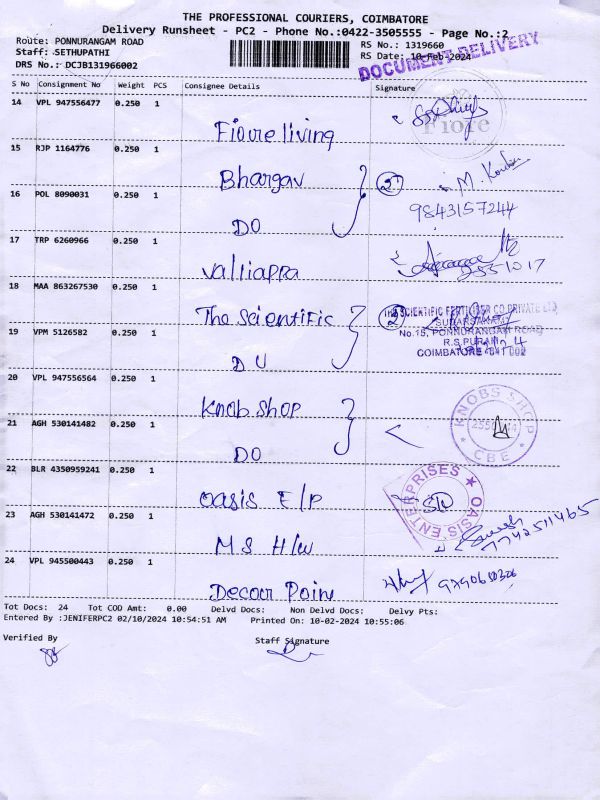 THE PROFESSIONAL COURIERS, COIMBATORE
Delivery Runsheet - PC2 - Phone No.:0422-3505555 - Page No.:2
Route: PONNURANGAM ROAD
Staff: SETHUPATHI
DRS No.: DCJB131966002
RS No.: 1319660
RS Date: 10-Feb-2024
DOCUMENT DELIVERY
S No Consignment No Weight PCS Consignee Details Signature
14 VPL 947556477 0.250 1
Fiore living
Fiore
15 RJP 1164776 0.250 1
Bhargav 2 M.
16 POL 8090031 0.250 1
9843157244
DO
17 TRP 6260966 0.250 1
valliappa
2551017
18 MAA 863267530 0.250 1
The Scientific 2 THE SCIENTIFIC FERTILISER CO PRIVATE LTD
No.15, PONNURANGAM ROAD
19 VPM 5126582 0.250 1
R.S PURAM
COIMBATORE - 641 002
DU
20 VPL 947556564 0.250 1
Knob shop
KNOBS SHOP
CBE
21 AGH 530141482 0.250 1
DO
22 BLR 4350959241 0.250 1
oasis E/P
OASIS ENTERPRISES
23 AGH 530141472 0.250 1
M S H/W
Suresh
7742511465
24 VPL 945500443 0.250 1
Decoor Poine
Tot Docs: 24 Tot COD Amt: 0.00 Delvd Docs: Non Delvd Docs: Delvy Pts:
Entered By :JENIFERPC2 02/10/2024 10:54:51 AM Printed On: 10-02-2024 10:55:06
Verified By Staff Signature